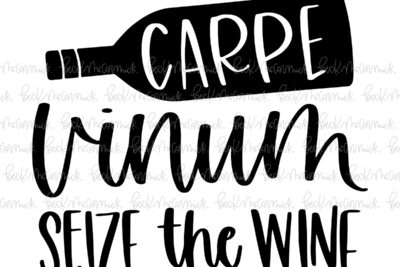 CARPE
vinum
SEIZE the WINE